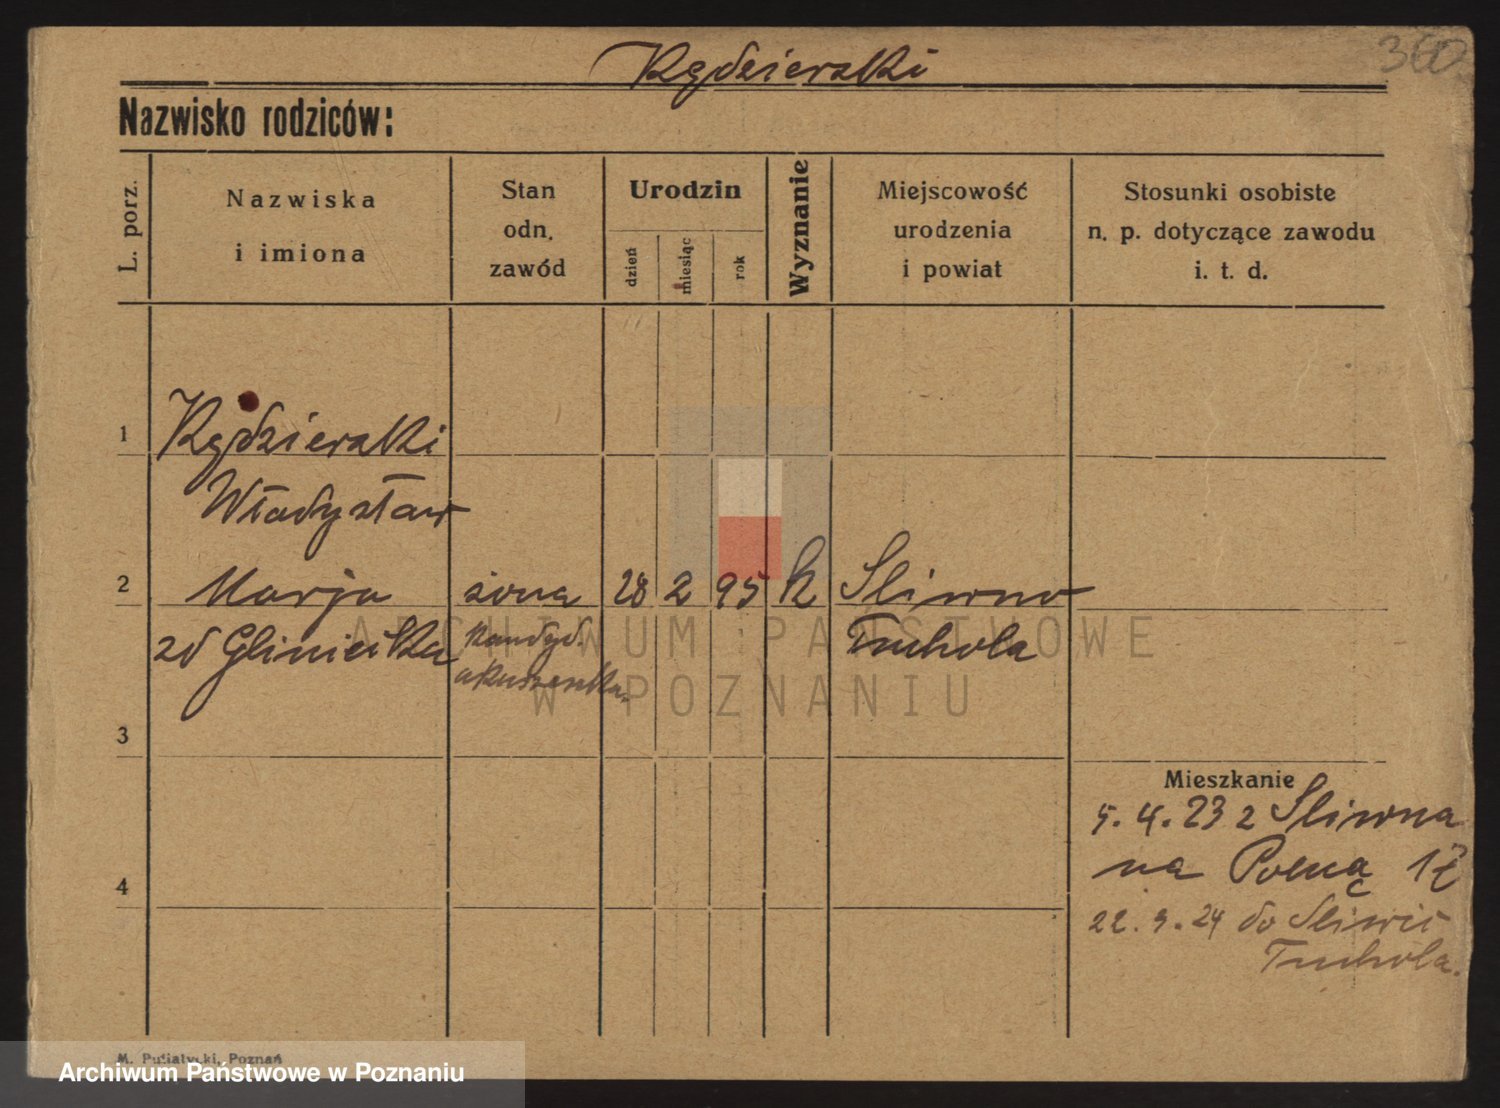 360
Kędzierski
Nazwisko rodziców:
L. porz.
Nazwiska
i imiona
Stan
odn.
zawód
Urodzin
dzień
miesiąc
rok
Wyznanie
Miejscowość
urodzenia
i powiat
Stosunki osobiste
n. p. dotyczące zawodu
i. t. d.
1 Kędzierski
Władysław
2 Marja żona 28 2 95 k Sliwno
zd Gliniecka kandyd. Tuchola
akuszerka.
3
Mieszkanie
5. 4. 23 z Sliwna
na Polną
4
22. 3. 24 do
Tuchola.
M. Putiatycki, Poznań
ARCHIWUM PAŃSTWOWE
W POZNANIU
Archiwum Państwowe w Poznaniu